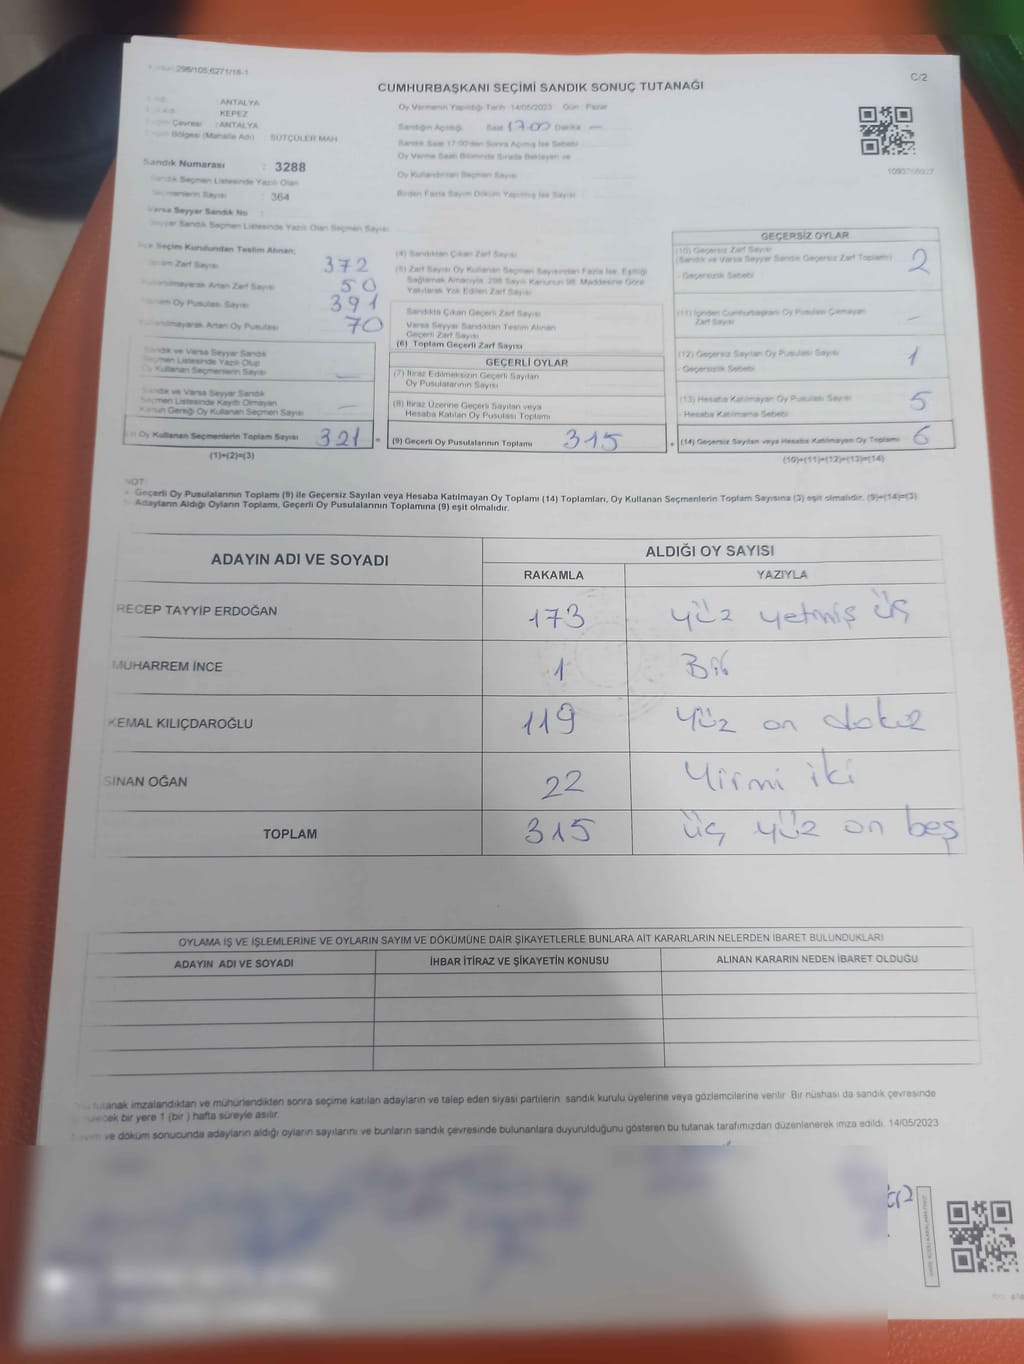 298/105;6271/18-1
C/2
CUMHURBAŞKANI SEÇİMİ SANDIK SONUÇ TUTANAĞI
: ANTALYA
: KEPEZ
Çevresi : ANTALYA
Bölgesi (Mahalle Adı) : SÜTÇÜLER MAH.
Sandık Numarası : 3288
Sandık Seçmen Listesinde Yazılı Olan
Seçmenlerin Sayısı : 364
Varsa Seyyar Sandık No :
Seyyar Sandık Seçmen Listesinde Yazılı Olan Seçmen Sayısı
Oy Vermenin Yapıldığı Tarih : 14/05/2023 Gün : Pazar
Sandığın Açıldığı Saat 17:00 Dakika —
Sandık Saat 17:00'den Sonra Açılmış İse Sebebi
Oy Verme Saati Bitiminde Sırada Bekleyen ve
Oy Kullandırılan Seçmen Sayısı
Birden Fazla Sayım Döküm Yapılmış İse Sayısı
İlçe Seçim Kurulundan Teslim Alınan;
Zarf Sayısı 372
Artan Zarf Sayısı 50
Oy Pusulası Sayısı 391
Artan Oy Pusulası 70
Sandık ve Varsa Seyyar Sandık
Seçmen Listesinde Yazılı Olup
Oy Kullanan Seçmenlerin Sayısı —
Sandık ve Varsa Seyyar Sandık
Seçmen Listesinde Kayıtlı Olmayan
Kanun Gereği Oy Kullanan Seçmen Sayısı —
Oy Kullanan Seçmenlerin Toplam Sayısı 321 =
(1)+(2)=(3)
(4) Sandıktan Çıkan Zarf Sayısı
(5) Zarf Sayısı Oy Kullanan Seçmen Sayısından Fazla İse, Eşitliği
Sağlamak Amacıyla, 298 Sayılı Kanunun 98. Maddesine Göre
Yakılarak Yok Edilen Zarf Sayısı
Sandıkta Çıkan Geçerli Zarf Sayısı
Varsa Seyyar Sandıktan Teslim Alınan
Geçerli Zarf Sayısı
(6) Toplam Geçerli Zarf Sayısı
GEÇERLİ OYLAR
(7) İtiraz Edilmeksizin Geçerli Sayılan
Oy Pusulalarının Sayısı
(8) İtiraz Üzerine Geçerli Sayılan veya
Hesaba Katılan Oy Pusulası Toplamı
(9) Geçerli Oy Pusulalarının Toplamı 315 +
GEÇERSİZ OYLAR
(10) Geçersiz Zarf Sayısı
(Sandık ve Varsa Seyyar Sandık Geçersiz Zarf Toplamı) 2
- Geçersizlik Sebebi
(11) İçinden Cumhurbaşkanı Oy Pusulası Çıkmayan
Zarf Sayısı —
(12) Geçersiz Sayılan Oy Pusulası Sayısı 1
- Geçersizlik Sebebi
(13) Hesaba Katılmayan Oy Pusulası Sayısı 5
- Hesaba Katılmama Sebebi
(14) Geçersiz Sayılan veya Hesaba Katılmayan Oy Toplamı 6
(10)+(11)+(12)+(13)=(14)
NOT:
Geçerli Oy Pusulalarının Toplamı (9) ile Geçersiz Sayılan veya Hesaba Katılmayan Oy Toplamı (14) Toplamları, Oy Kullanan Seçmenlerin Toplam Sayısına (3) eşit olmalıdır. (9)+(14)=(3)
Adayların Aldığı Oyların Toplamı, Geçerli Oy Pusulalarının Toplamına (9) eşit olmalıdır.
ADAYIN ADI VE SOYADI
ALDIĞI OY SAYISI
RAKAMLA YAZIYLA
RECEP TAYYİP ERDOĞAN 173 yüz yetmiş üç
MUHARREM İNCE 1 Bir
KEMAL KILIÇDAROĞLU 119 Yüz on dokuz
SİNAN OĞAN 22 Yirmi iki
TOPLAM 315 üç yüz on beş
OYLAMA İŞ VE İŞLEMLERİNE VE OYLARIN SAYIM VE DÖKÜMÜNE DAİR ŞİKAYETLERLE BUNLARA AİT KARARLARIN NELERDEN İBARET BULUNDUKLARI
ADAYIN ADI VE SOYADI İHBAR İTİRAZ VE ŞİKAYETİN KONUSU ALINAN KARARIN NEDEN İBARET OLDUĞU
tutanak imzalandıktan ve mühürlendikten sonra seçime katılan adayların ve talep eden siyasi partilerin sandık kurulu üyelerine veya gözlemcilerine verilir. Bir nüshası da sandık çevresinde
bir yere 1 (bir) hafta süreyle asılır.
ve döküm sonucunda adayların aldığı oyların sayılarını ve bunların sandık çevresinde bulunanlara duyurulduğunu gösteren bu tutanak tarafımızdan düzenlenerek imza edildi. 14/05/2023